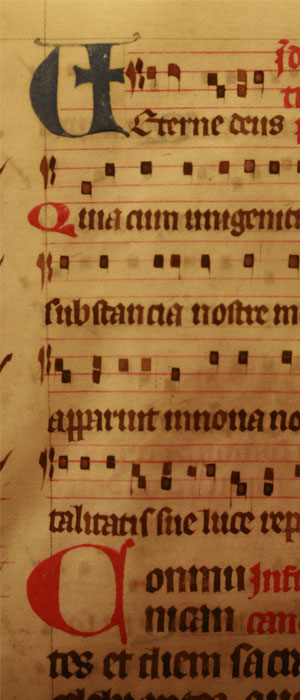 Eterne deus
Quia cum unigenit
substancia nostre m
apparuit innoua no
talitatis sue luce rep
Conmu Infr
nican can
tes et diem sacr